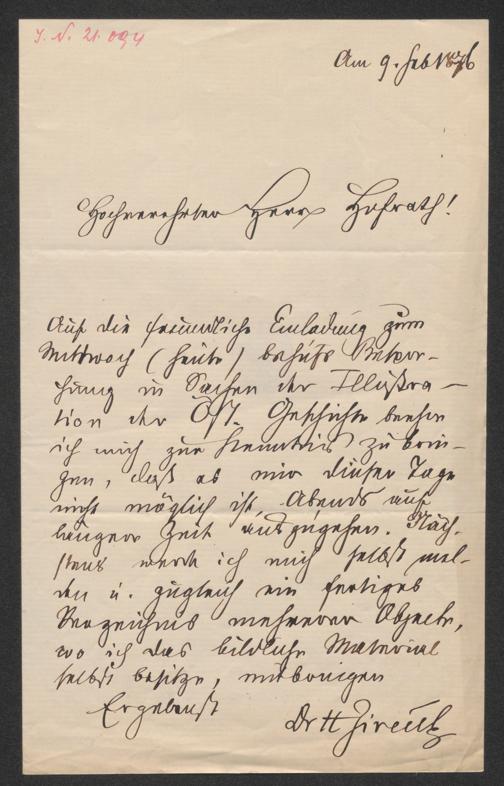 I. N. 21.094
Am 9. Feb 1876
Hochverehrter Herr Hofrath!
Auf die freundliche Einladung zum
Mittwoch (heute) behufs Besor-
chung in Sachen der Illustra-
tion der Öst. Geschichte beehre
ich mich zur Kenntnis zu brin-
gen, daß es mir dieser Tage
nicht möglich ist, Abends auf
längere Zeit auszugehen. Näch-
stens werde ich mich selbst mel-
den u. zugleich ein fertiges
Verzeichnis mehrerer Objecte,
wo ich das bildliche Material
selbst besitze, mitbringen
Ergebenst
Dr H